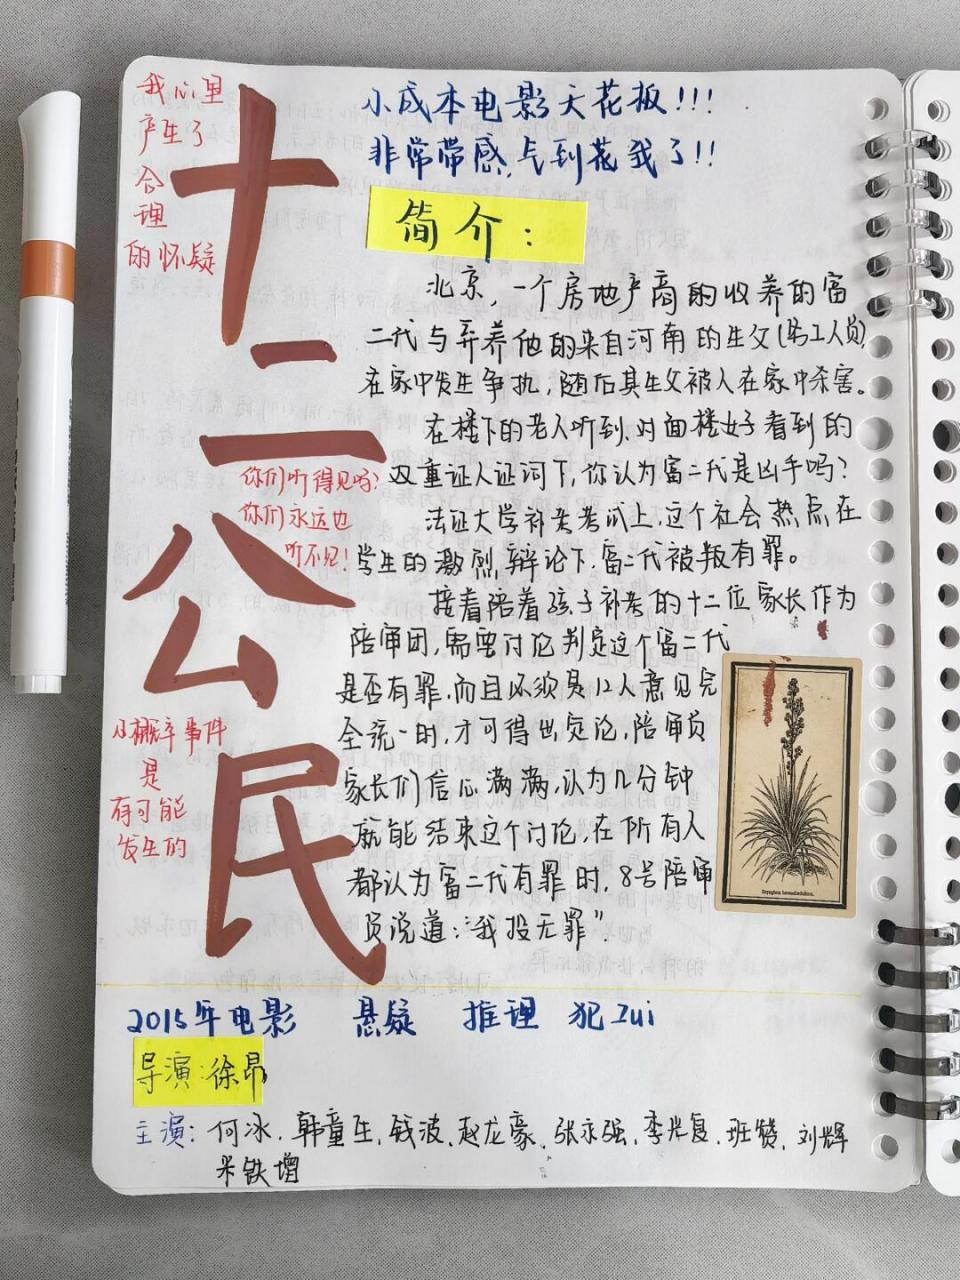 我心里
产生了
合理
的怀疑
十二公民
小成本电影天花板!!!
非常带感,气到花我了!!
简介:
北京,一个房地产商的收养的富
二代与弃养他的来自河南的生父(务工人员)
在家中发生争执,随后其生父被人在家中杀害。
在楼下的老人听到、对面楼女子看到的
双重证人证词下,你认为富二代是凶手吗?
法证大学补考考试上,这个社会热点在
学生的激烈辩论下,富二代被叛有罪。
接着陪着孩子补考的十二位家长作为
陪审团,需要讨论判定这个富二代
是否有罪,而且必须是12人意见完
全统一时,才可得出定论,陪审员
家长们信心满满,认为几分钟
就能结束这个讨论,在所有人
都认为富二代有罪时,8号陪审
员说道:“我投无罪”.
你们听得见吗?
你们永远也
听不见!
小概率事件
是
有可能
发生的
2015年电影 悬疑 推理 犯Zui
导演:徐昂
主演:何冰,韩童生,钱波,赵龙豪,张永强,李光复,班赞,刘辉
米铁增